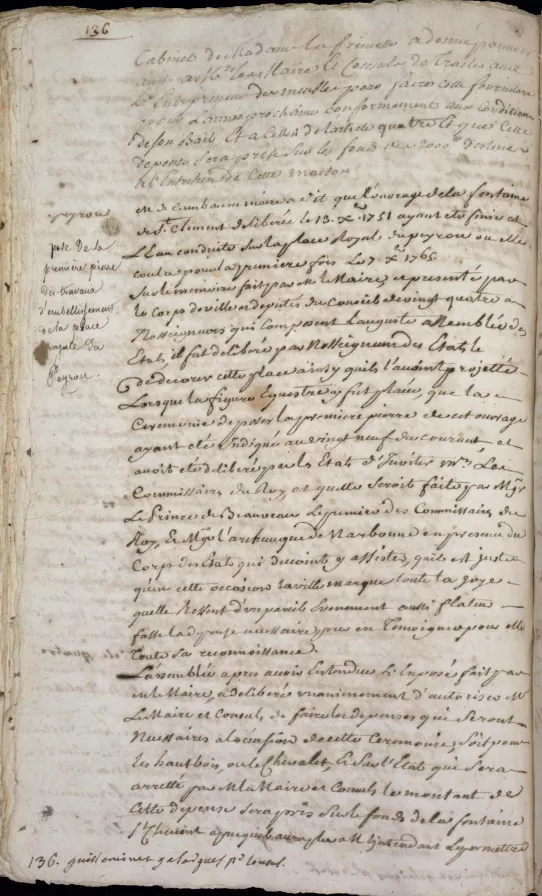 136
Cabinet de Madame la Princesse a donné pouvoir
a Mrs les Maire et Consuls de traiter avec
L'Entrepreneur des meubles pour faire cette fourniture
pour l'année prochaine conformement aux conditions
de son Bail et a celles de l'article quatre et que cette
depense sera prise sur le fond de 2000# destinés
à l'Entretien de cette maison
M. de Cambacerès maire a dit que l'ouvrage de la fontaine
de St. Clement deliberée le 13. Xbre 1751 ayant été finie et
L'Eau conduite sur la place Royale du peyrou ou elle
coula pour la premiere fois le 7. Xbre 1765
Sur le memoire fait par M. le Maire, et presenté par
le Corps de ville et deputés du Conseil de vingt quatre a
Nosseigneurs qui composent l'auguste assemblée des
Etats, il fut deliberé par Nosseigneurs des Etats le
de decorer cette place ainsy qu'ils l'avoint projetté
Lorsque la figure Equestre y fut placée, que la
Ceremonie de poser la premiere pierre de cet ouvrage
ayant été Indiqué au vingt neuf du courant et
avoit été deliberé par les Etats d'Inviter Mrs. Les
Commissaires du Roy, et quelle seroit faite par Mgr
Le Prince de Beauveau le premier des Commissaires du
Roy, & Mgr l'archeveque de Narbonne en presence du
Corps des Etats qui devoint y assister, qu'il est juste
qu'en cette occasion la ville marque toute la joye
quelle Ressent d'un pareil Evenement aussi flateur
fasse la depense necessaire, pour en Temoigner pour elle
Toute sa reconnoissance.
L'assemblée apres avoir Entendue L'Exposé fait par
M. le Maire, a deliberé unanimement d'autoriser Mrs
Le Maire et Consuls, de faire les depenses qui seront
Necessaires a l'occasion de cette Ceremonie, soit pour
Les hautbois, ou le Chevalet, & sur l'Etat qui sera
arretté par M. le Maire et Consuls le montant de
Cette depense sera pris sur le fonds de la fontaine
St. Clement apres que Mr l'Intendant l'a permettre
peyrou
pose de la
premiere pierre
des travaux
d'embellissement
de la place
royale du
Peyrou.
136.